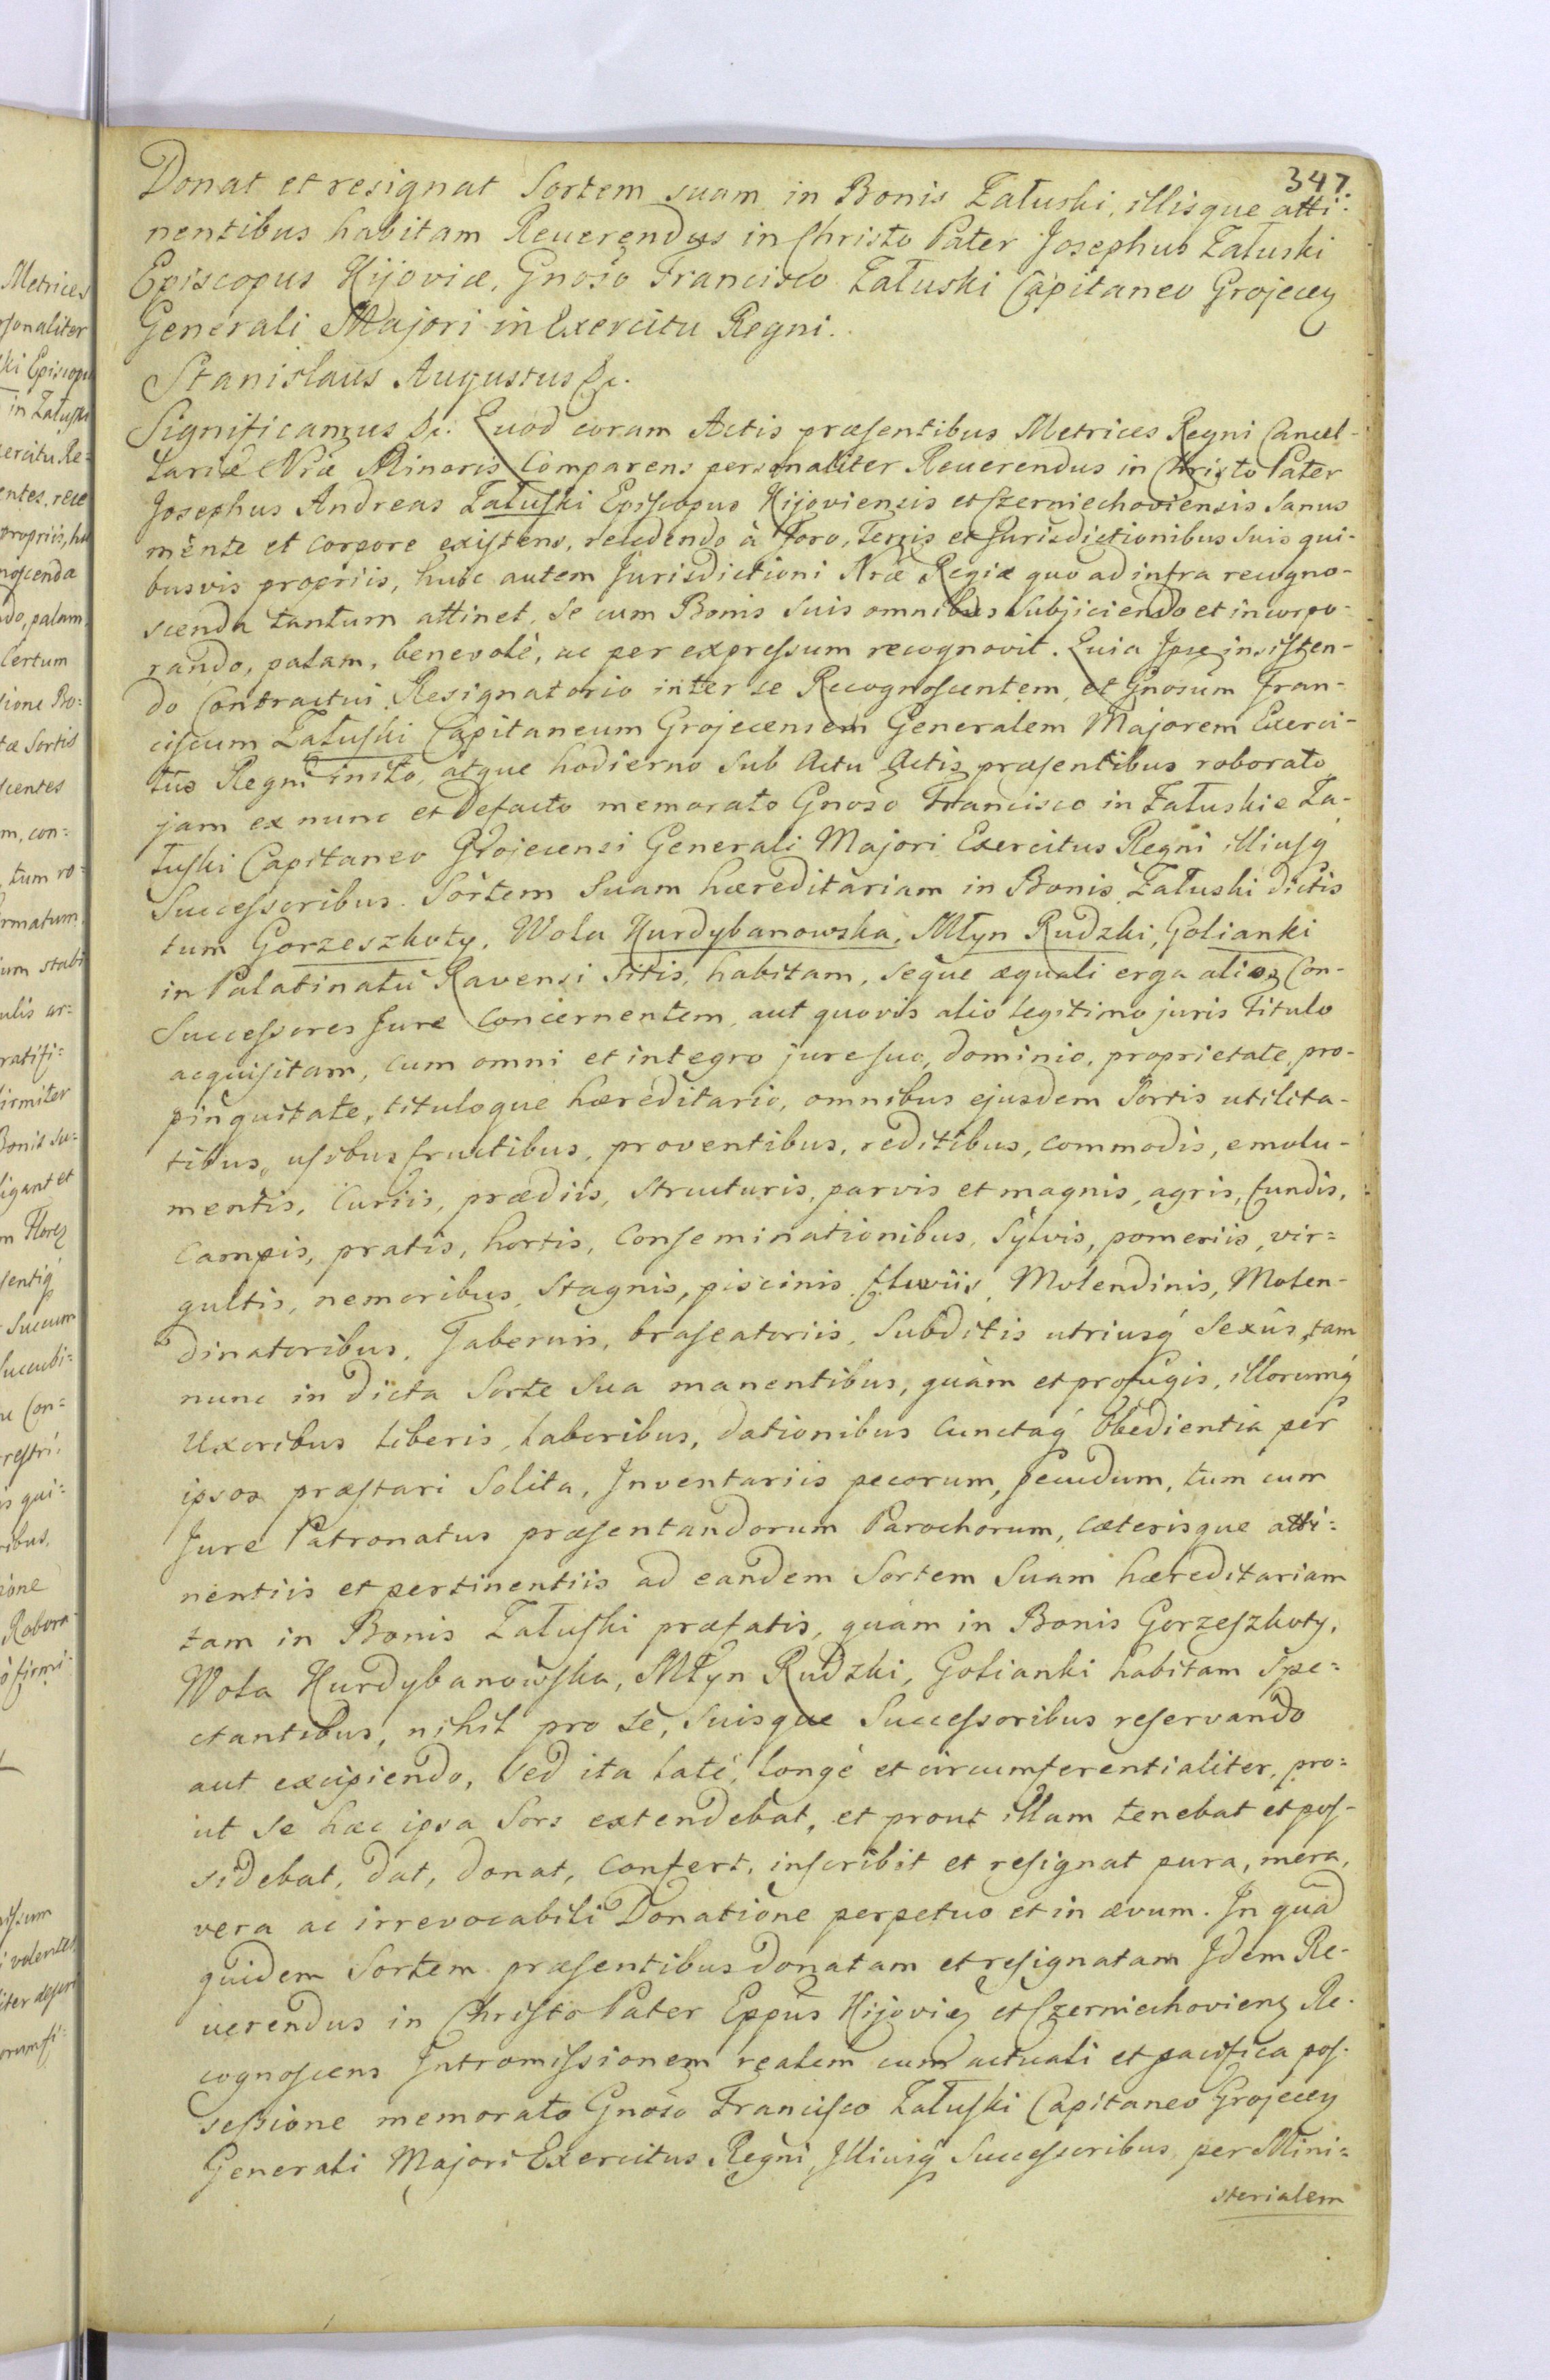 347.
Donat et resignat Sortem suam in Bonis Załuski, illisque atti-
nentibus habitam Reuerendus in Christo Pater Josephus Załuski
Episcopus Kijoviæ, Gnoso Francisco Załuski Capitaneo Grojecen
Generali Majori in Exercitu Regni.
Stanislaus Augustus &c.
Significamus &c. Quod coram Actis præsentibus Metrices Regni Cancel-
lariæ Nræ Minoris Comparens personaliter Reuerendus in Christo Pater
Josephus Andreas Załuski Episcopus Kijoviensis et Czerniechoviensis Sanus
mente et corpore existens, recedendo à Foro, Terris et Jurisdictionibus Suis qui-
busvis propriis, huic autem Jurisdictioni Nræ Regiæ quo ad infra recogno-
scenda tantum attinet, Se cum Bonis Suis omnibus Subjiciendo et incorpo-
rando, palam, benevolè, ac per expressum recognovit. Quia Ipse insisten-
do Contractui Resignatorio inter se Recognoscentem, et Gnosum Fran-
ciscum Załuski Capitaneum Grojecensem Generalem Majorem Exerci-
tus Regni inito, atque hodierno Sub Actu Actis præsentibus roborato,
jam ex nunc et defacto memorato Gnoso Francisco in Załuskie Za-
łuski Capitaneo Grojecensi Generali Majori Exercitus Regni illiusq
Successoribus. Sortem Suam hæreditariam in Bonis Załuski dictis
tum Gorzeszkoty, Wola Hurdybanowska, Młyn Rudzki, Golianki
in Palatinatu Ravensi Sitis, habitam, seque æquali erga alios Con-
Successores Jure Concernentem, aut quovis alio legitimo juris titulo
acquisitam, cum omni et integro jure suo, dominio, proprietate, pro-
pinquitate, tituloque hæreditario, omnibus ejusdem Sortis utilita-
tibus, usibusfructibus, proventibus, reditibus, commodis, emolu-
mentis, Curiis, prædiis, structuris, parvis et magnis, agris, fundis,
Campis, pratis, hortis, Conseminationibus, Sylvis, pomeriis, vir=
gultis, nemoribus, Stagnis, piscinis, fluviis, Molendinis, Molen-
dinatoribus, Tabernis, braseatoriis, Subditis utriusq Sexûs, tam
nunc in dicta Sorte Sua manentibus, quàm et profugis, illorumq
Uxoribus liberis, laboribus, dationibus Cunctaq Obedientia per
ipsos præstari Solita, Inventariis pecorum, pecudum, tum cum
Jure Patronatus præsentandorum Parochorum, cæterisque atti=
nentiis et pertinentiis ad eandem Sortem Suam hæreditariam
tam in Bonis Załuski præfatis, quàm in Bonis Gorzeszkoty,
Wola Hurdybanowska, Młyn Rudzki, Golianki habitam Spe=
ctantibus, nihil pro se, Suisque Successoribus reservando
aut excipiendo, Sed ita latè, longè et circumferentialiter, pro=
ut se hæc ipsa Sors extendebat, et prout illam tenebat et pos-
sidebat, dat, donat, confert, inscribit et resignat pura, mera,
vera ac irrevocabili Donatione perpetuo et in ævum. In quam
quidem Sortem præsentibus donatam et resignatam Idem Re-
uerendus in Christo Pater Eppus Kijovien et Czerniechovien Re-
cognoscens Intromissionem realem cum actuali et pacifica pos-
sessione memorato Gnoso Francisco Załuski Capitaneo Grojecen
Generali Majori Exercitus Regni, Illiusq Successoribus per Mini=
sterialem